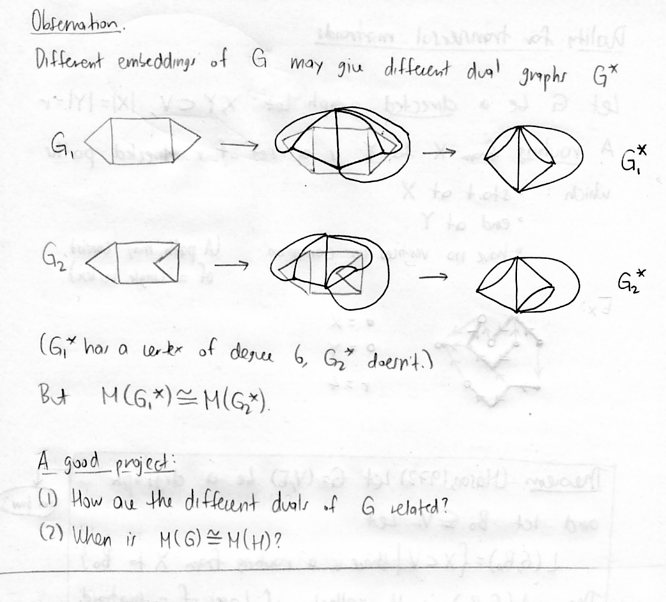 Observation.
Different embeddings of G may give different dual graphs G*
G₁ → → G₁*
G₂ → → G₂*
(G₁* has a vertex of degree 6, G₂* doesn't.)
But M(G₁*) ≅ M(G₂*).
A good project:
(1) How are the different duals of G related?
(2) When is M(G) ≅ M(H)?